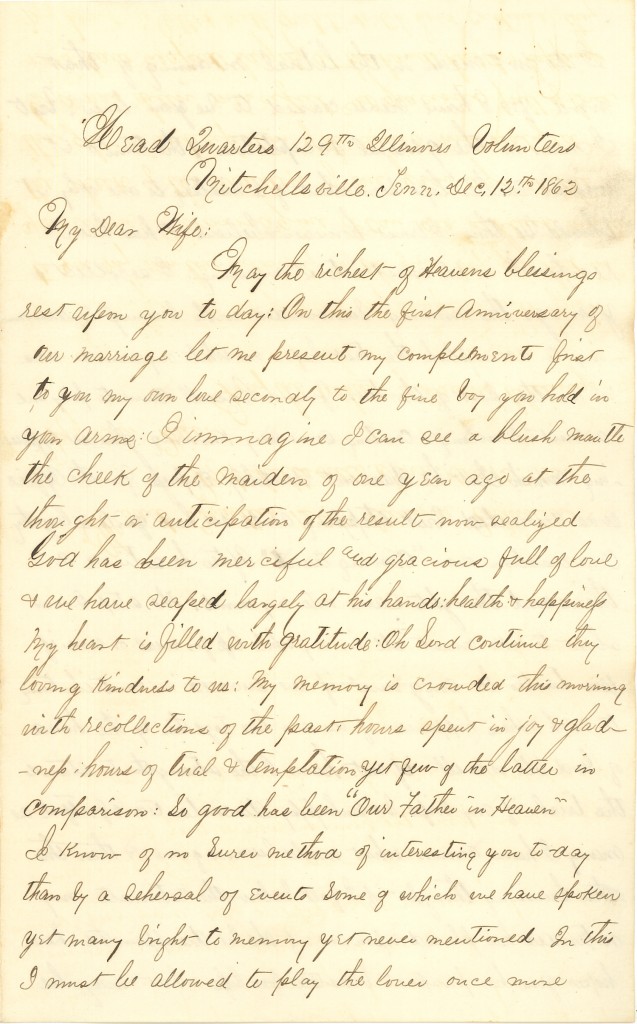 Head Quarters 129th Illinois Volunteers
Mitchellsville. Tenn. Dec, 12th 1862
My Dear Wife:
May the richest of Heavens blessings
rest upon you to day: On this the first Anniversary of
our marriage let me present my complements first
to you my own love secondly to the fine boy you hold in
your arms: I immagine I can see a blush mantle
the cheek of the maiden of one year ago at the
thought or anticipation of the result now realized
God has been merciful and gracious full of love
& we have reaped largely at his hands: health & happiness
My heart is filled with gratitude: Oh Lord continue thy
loving kindness to us: My memory is crowded this morning
with recollections of the past, hours spent in joy & glad-
-ness: hours of trial & temptation yet few of the latter in
comparison: So good has been "Our Father in Heaven"
I know of no surer method of interesting you to-day
than by a rehersal of events some of which we have spoken
yet many bright to memory yet never mentioned In this
I must be allowed to play the lover once more